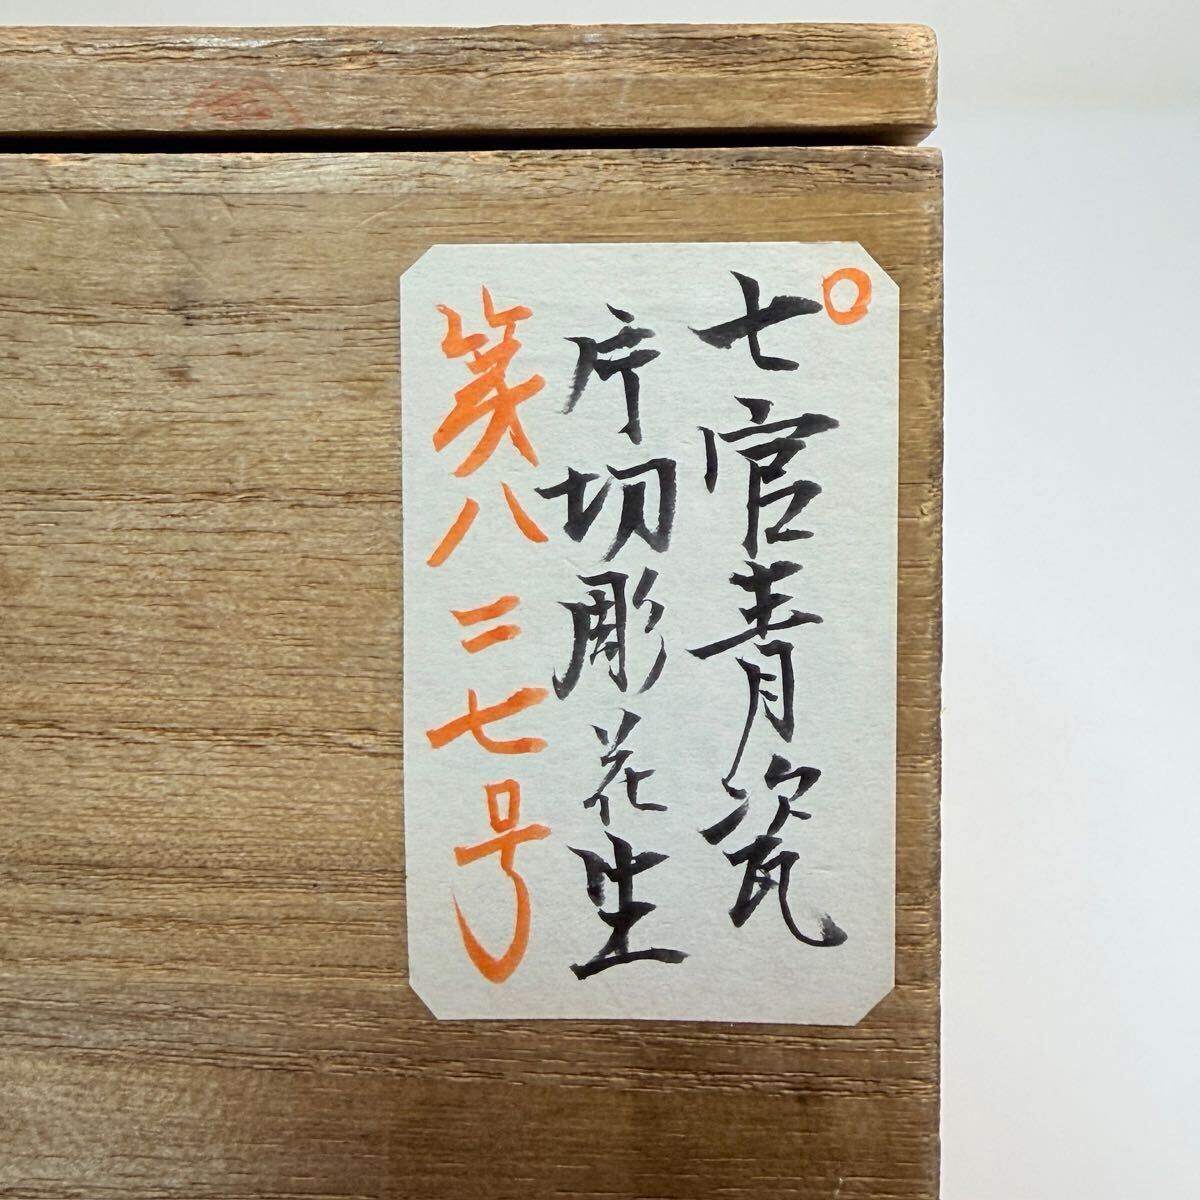 ○
七官青瓷
片切彫花生
第八二七号